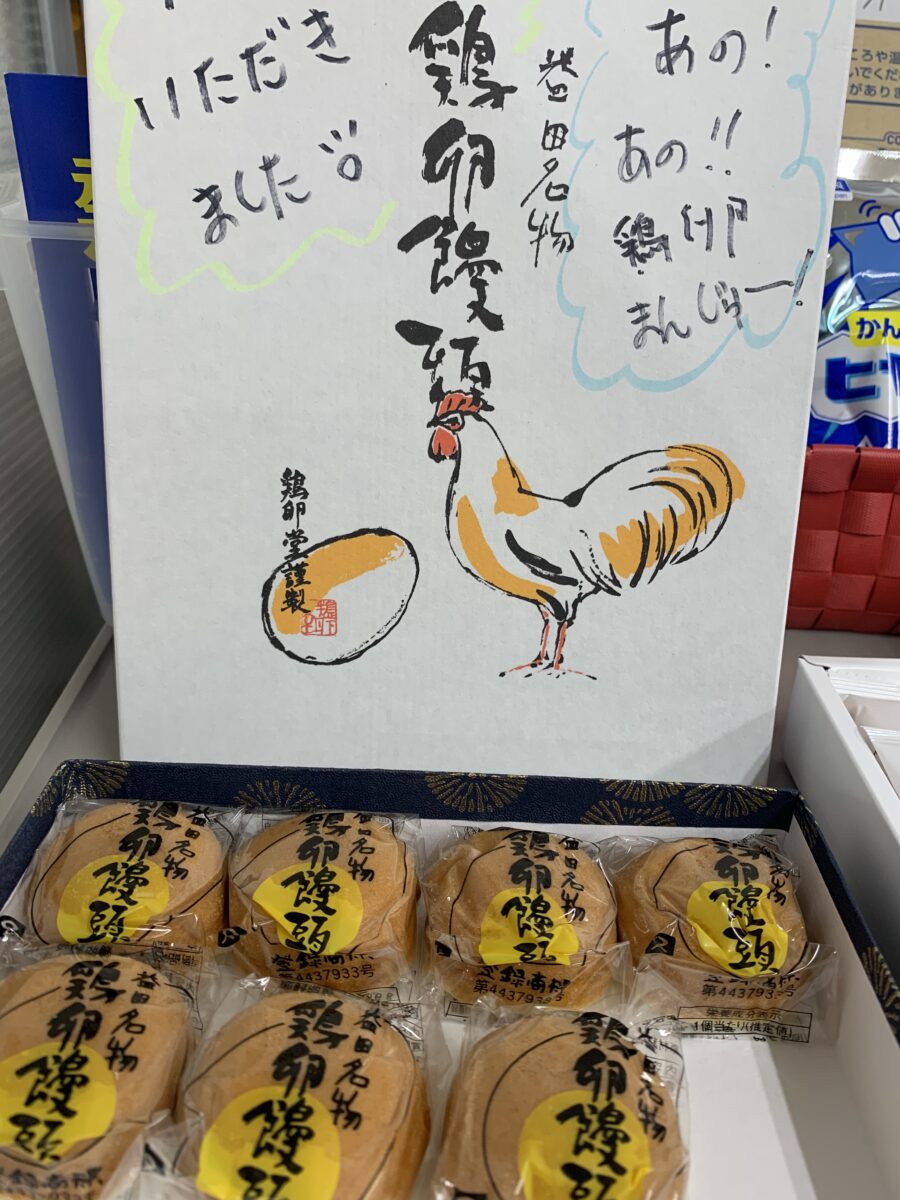 あの！
あの!!
鶏卵
まんじゅー！
益田名物
鶏卵饅頭
いただき
ました
鶏卵堂謹製
ころや温
いでくだ
があります
かん
ヒ
益田名物
鶏卵饅頭
益田名物
鶏卵饅頭
登録商標
第4437933号
益田名物
鶏卵饅頭
登録商標
第4437933号
益田名物
鶏卵饅頭
登録商標
第4437933号
栄養成分表示
1個当たり(推定値)
益田名物
鶏卵饅頭
登録商標
益田名物
鶏卵饅頭
益田名物
鶏卵饅頭